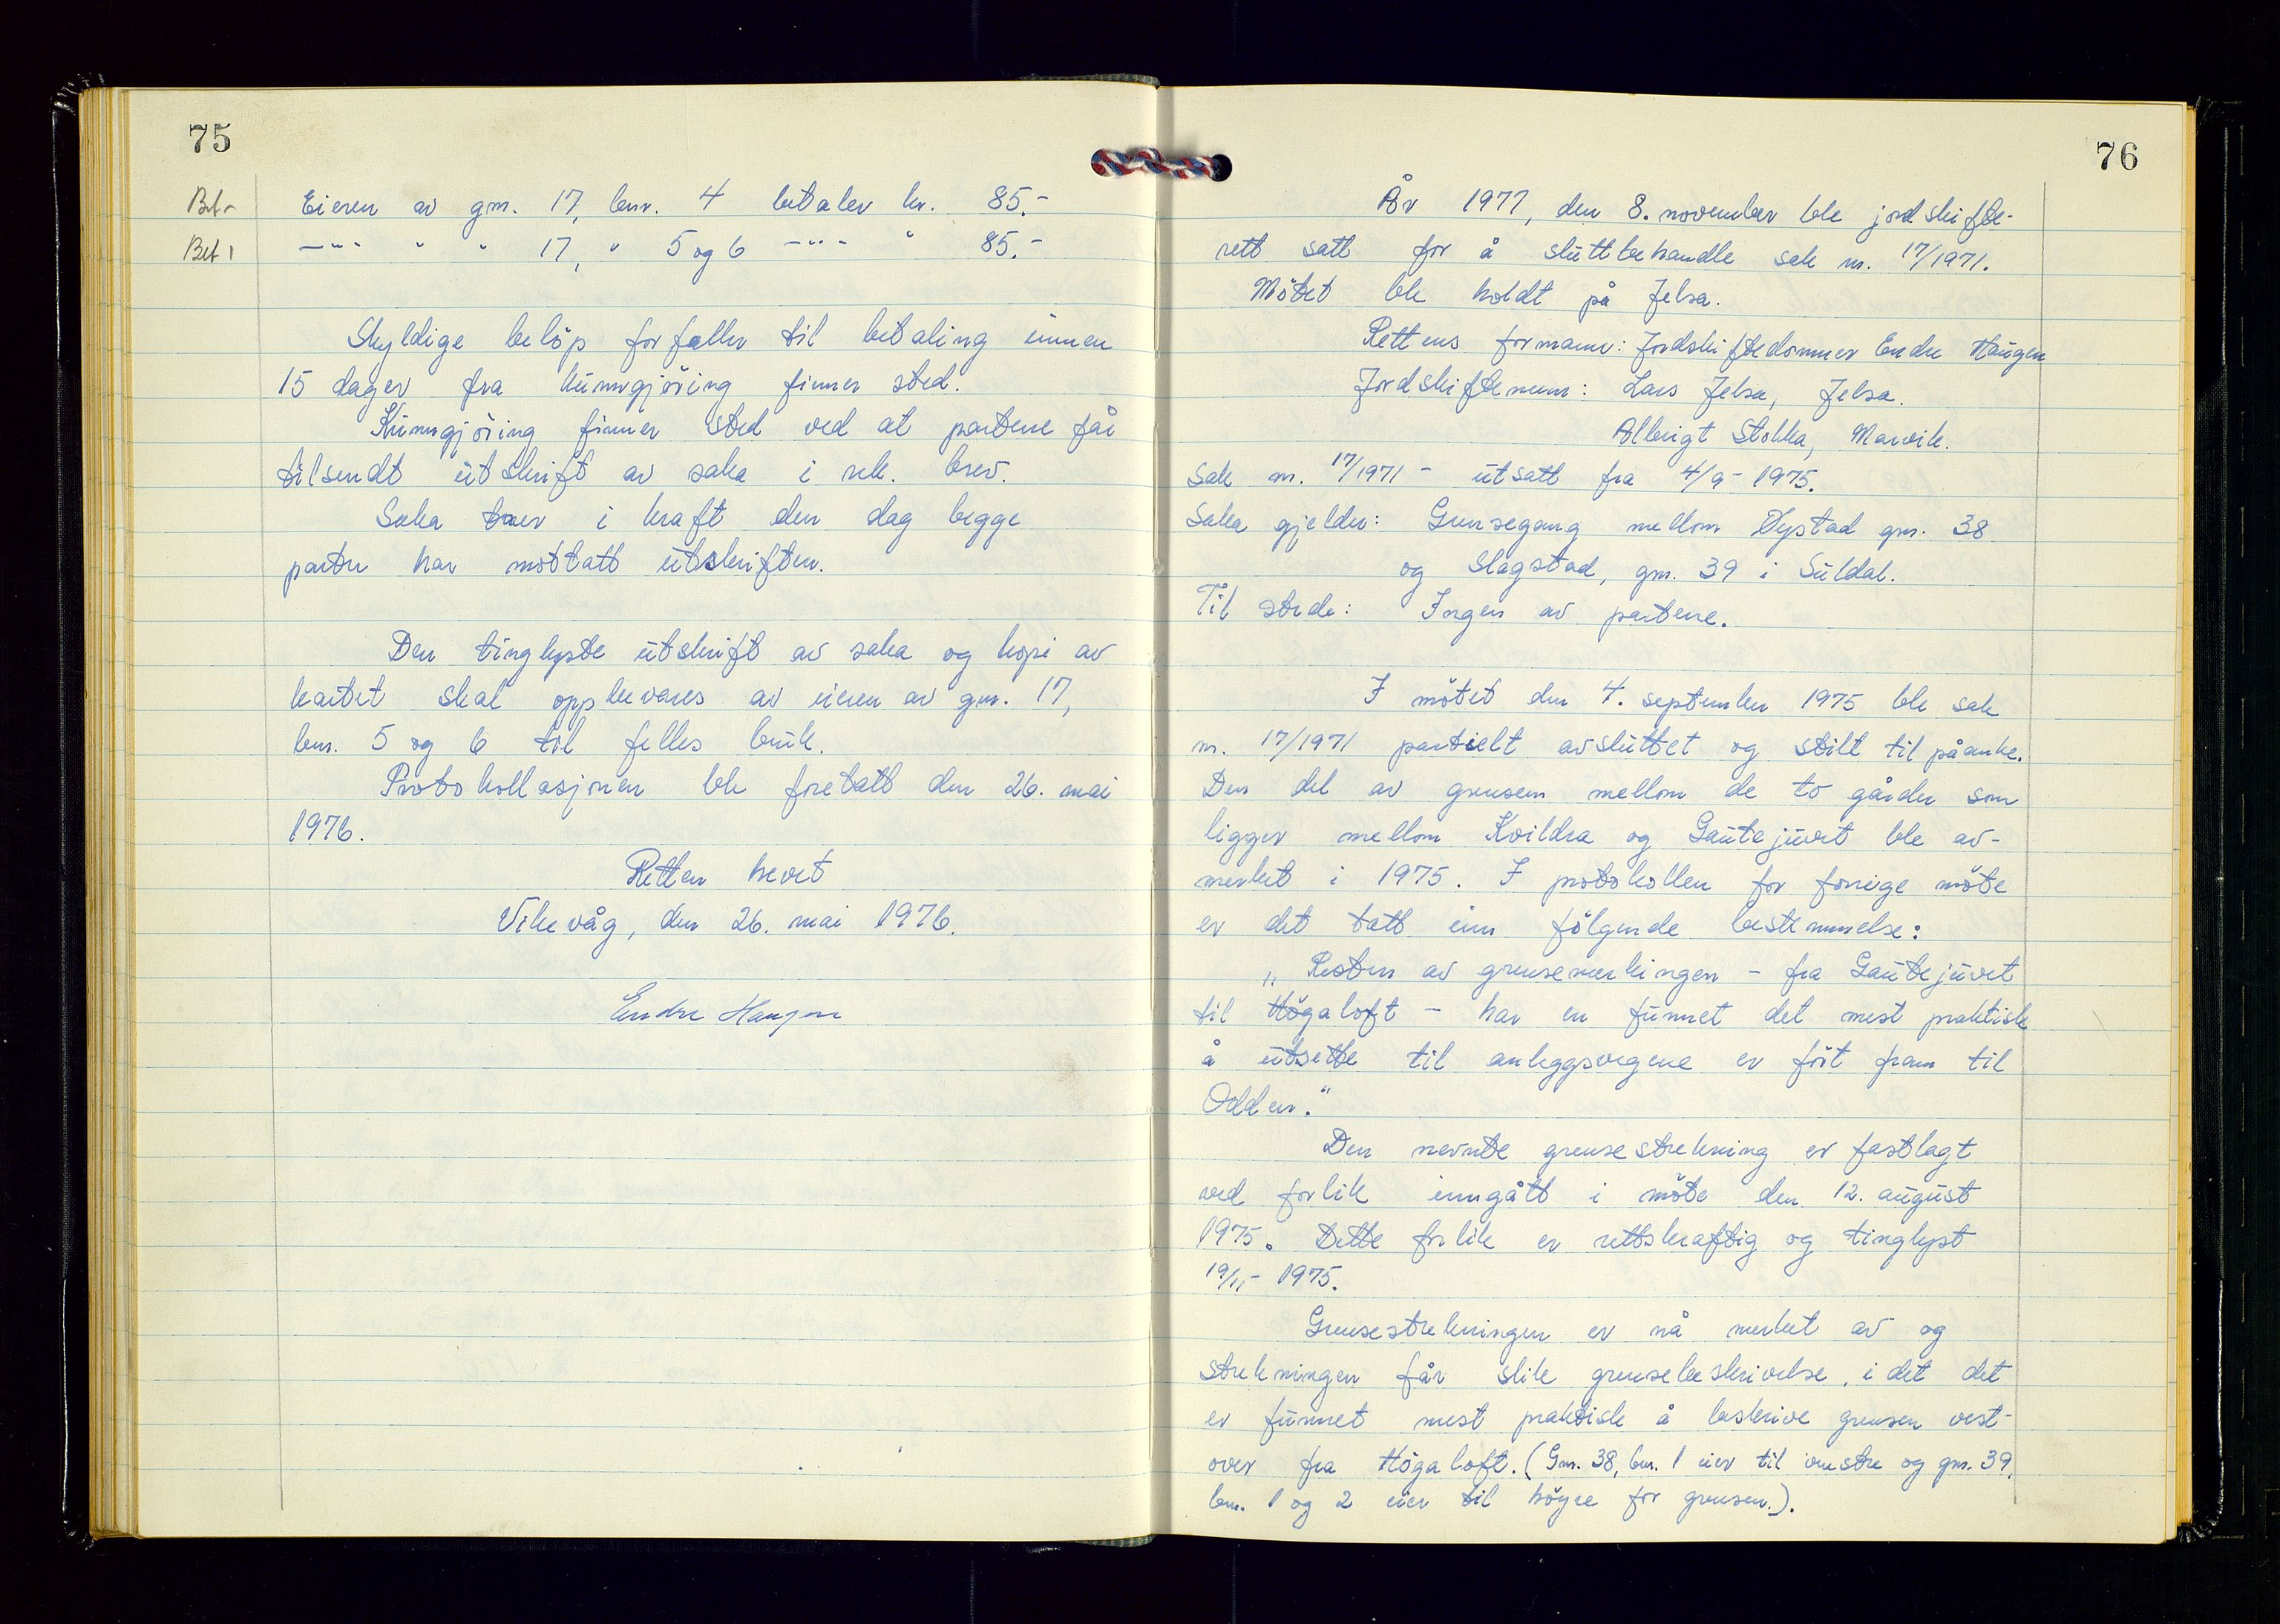 75
Bet- Eieren av gnr. 17, bnr. 4 betaler kr. 85.-
Bet1 -"- " " 17, " 5 og 6 -"- " 85.-
Skyldige beløp forfaller til betaling innen
15 dager fra kunngjøring finner sted.
Kunngjøring finner sted ved at partene får
tilsendt utskrift av saka i rek. brev.
Saka trer i kraft den dag begge
parter har mottatt utskriften.
Den tinglyste utskrift av saka og kopi av
kartet skal oppbevares av eieren av gnr. 17,
bnr. 5 og 6 til felles bruk.
Protokollasjonen ble foretatt den 26. mai
1976.
Retten hevet
Vikevåg, den 26. mai 1976.
Endre Haugen
76
År 1977, den 8. november ble jordskifte-
rett satt for å sluttbehandle sak nr. 17/1971.
Møtet ble holdt på Jelsa.
Rettens formann: Jordskiftedommer Endre Haugen
Jordskiftemenn: Lars Jelsa, Jelsa.
Albrigt Stokka, Marvik.
Sak nr. 17/1971 - utsatt fra 4/9-1975.
Saka gjelder: Grensegang mellom Øystad gnr. 38
og Slagstad, gnr. 39 i Suldal.
Til stede: Ingen av partene.
I møtet den 4. september 1975 ble sak
nr. 17/1971 partielt avsluttet og stilt til påanke.
Den del av grensen mellom de to gårder som
ligger mellom Kvildra og Gautejuvet ble av-
merket i 1975. I protokollen for forrige møte
er det tatt inn følgende bestemmelse:
„Resten av grensemerkingen - fra Gautejuvet
til Högaloft - har en funnet det mest praktisk
å utsette til anleggsvegene er ført fram til
Odden."
Den nevnte grensestrekning er fastlagt
ved forlik inngått i møte den 12. august
1975. Dette forlik er rettskraftig og tinglyst
19/11-1975.
Grensestrekningen er nå merket av og
strekningen får slik grensebeskrivelse, i det det
er funnet mest praktisk å beskrive grensen vest-
over fra Högaloft. (Gnr. 38, bnr. 1 eier til venstre og gnr. 39,
bnr. 1 og 2 eier til høyre for grensen.).